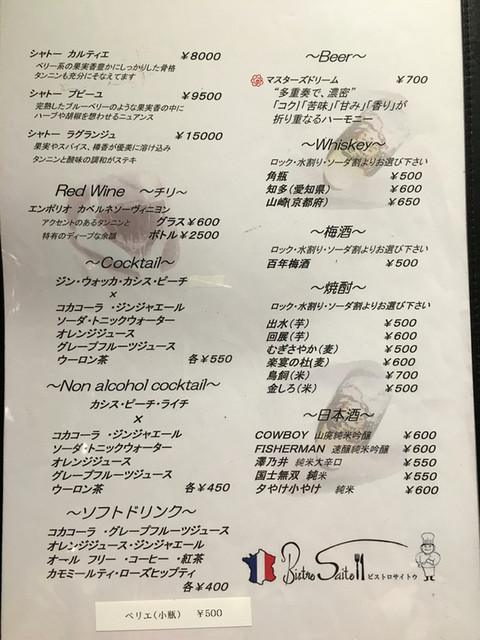 シャトー カルティエ ￥8000
ベリー系の果実香豊かにしっかりした骨格
タンニンも充分にそなえてます
シャトー プピーユ ￥9500
完熟したブルーベリーのような果実香の中に
ハーブや胡椒を想わせるニュアンス
シャトー ラグランジュ ￥15000
果実やスパイス、樽香が優美に溶け込み
タンニンと酸味の調和がステキ
Red Wine ～チリ～
エンポリオ カベルネソーヴィニヨン
アクセントのあるタンニンと グラス￥600
特有のディープな余韻 ボトル￥2500
～Cocktail～
ジン・ウォッカ・カシス・ピーチ
×
コカコーラ ・ジンジャエール
ソーダ・トニックウォーター
オレンジジュース
グレープフルーツジュース
ウーロン茶 各￥550
～Non alcohol cocktail～
カシス・ピーチ・ライチ
×
コカコーラ ・ジンジャエール
ソーダ・トニックウォーター
オレンジジュース
グレープフルーツジュース
ウーロン茶 各￥450
～ソフトドリンク～
コカコーラ ・グレープフルーツジュース
オレンジジュース・ジンジャエール
オール フリー ・コーヒー ・紅茶
カモミールティ・ローズヒップティ
各￥400
ペリエ(小瓶) ￥500
～Beer～
マスターズドリーム ￥700
“多重奏で、濃密”
「コク」「苦味」「甘み」「香り」が
折り重なるハーモニー
～Whiskey～
ロック・水割り・ソーダ割よりお選び下さい
角瓶 ￥500
知多(愛知県) ￥600
山崎(京都府) ￥650
～梅酒～
ロック・水割り・ソーダ割よりお選び下さい
百年梅酒 ￥500
～焼酎～
ロック・水割り・ソーダ割りよりお選び下さい
出水(芋) ￥500
回展(芋) ￥600
むぎさやか(麦) ￥500
楽宴の杜(麦) ￥600
鳥飼(米) ￥700
金しろ(米) ￥500
～日本酒～
COWBOY 山廃純米吟醸 ￥600
FISHERMAN 速醸純米吟醸 ￥600
澤乃井 純米大辛口 ￥550
国士無双 純米 ￥550
夕やけ小やけ 純米 ￥600
Bistro Saito ビストロサイトウ